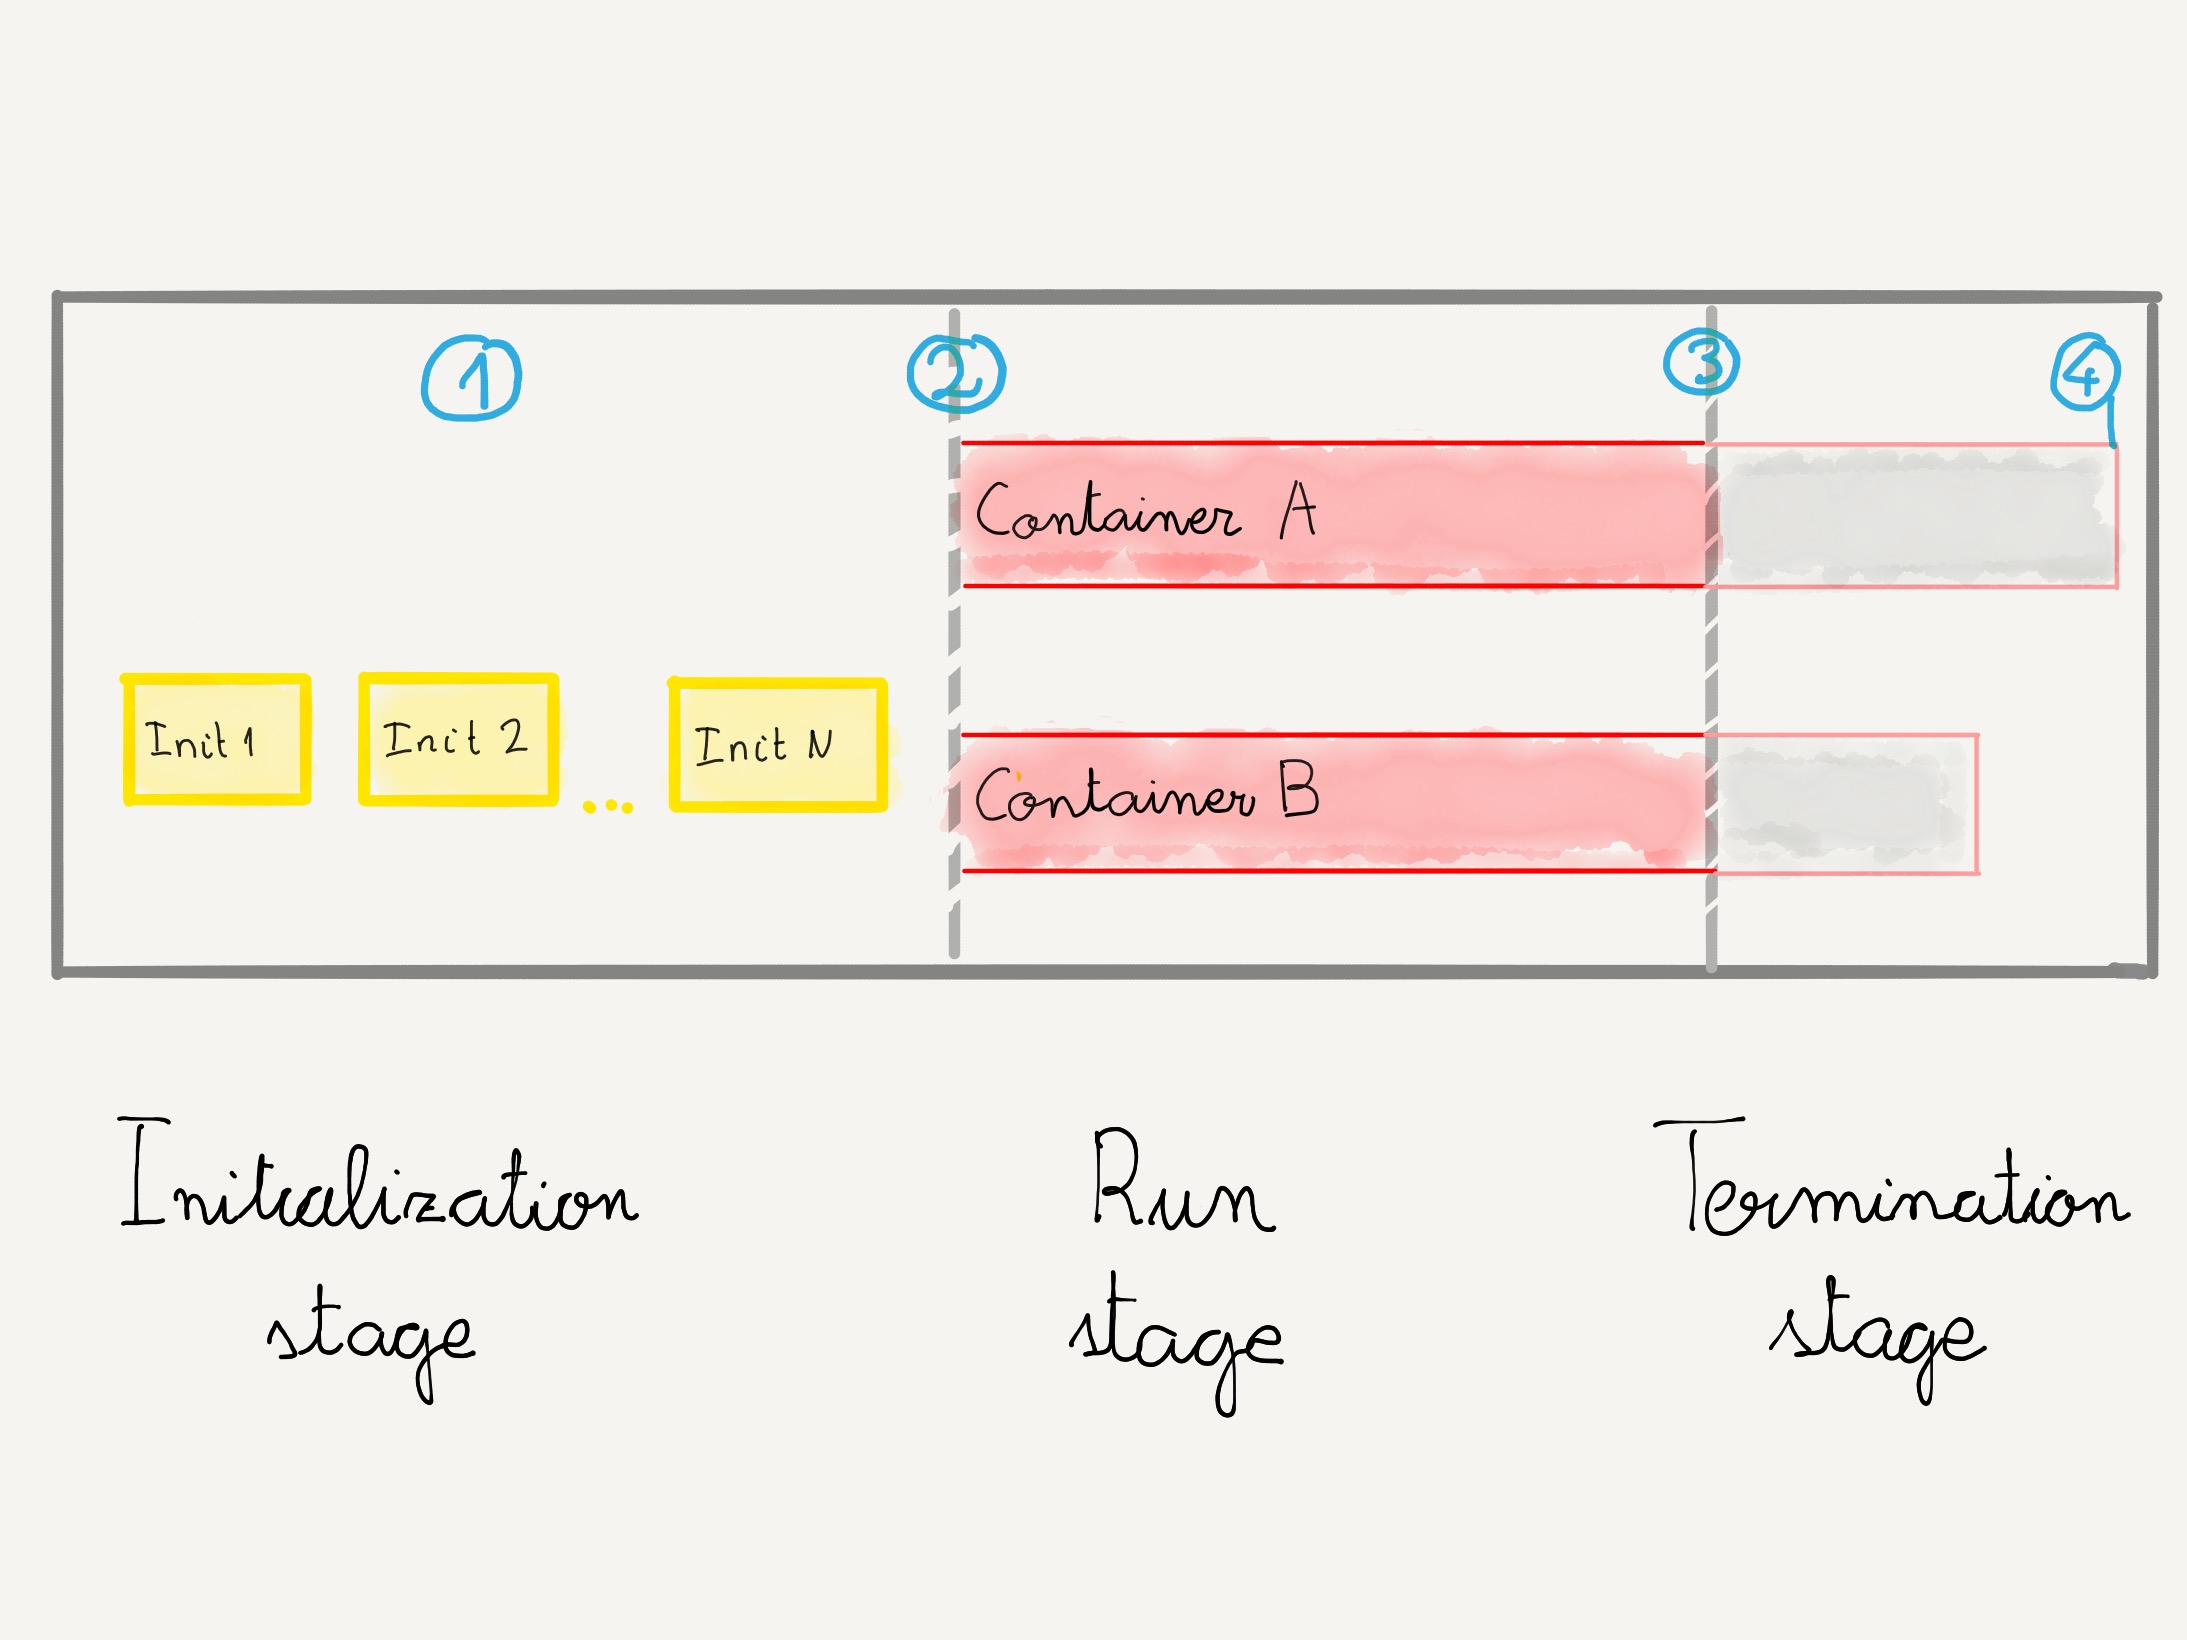 1
2
3
4
Container A
Init 1
Init 2
...
Init N
Container B
Initialization
stage
Run
stage
Termination
stage